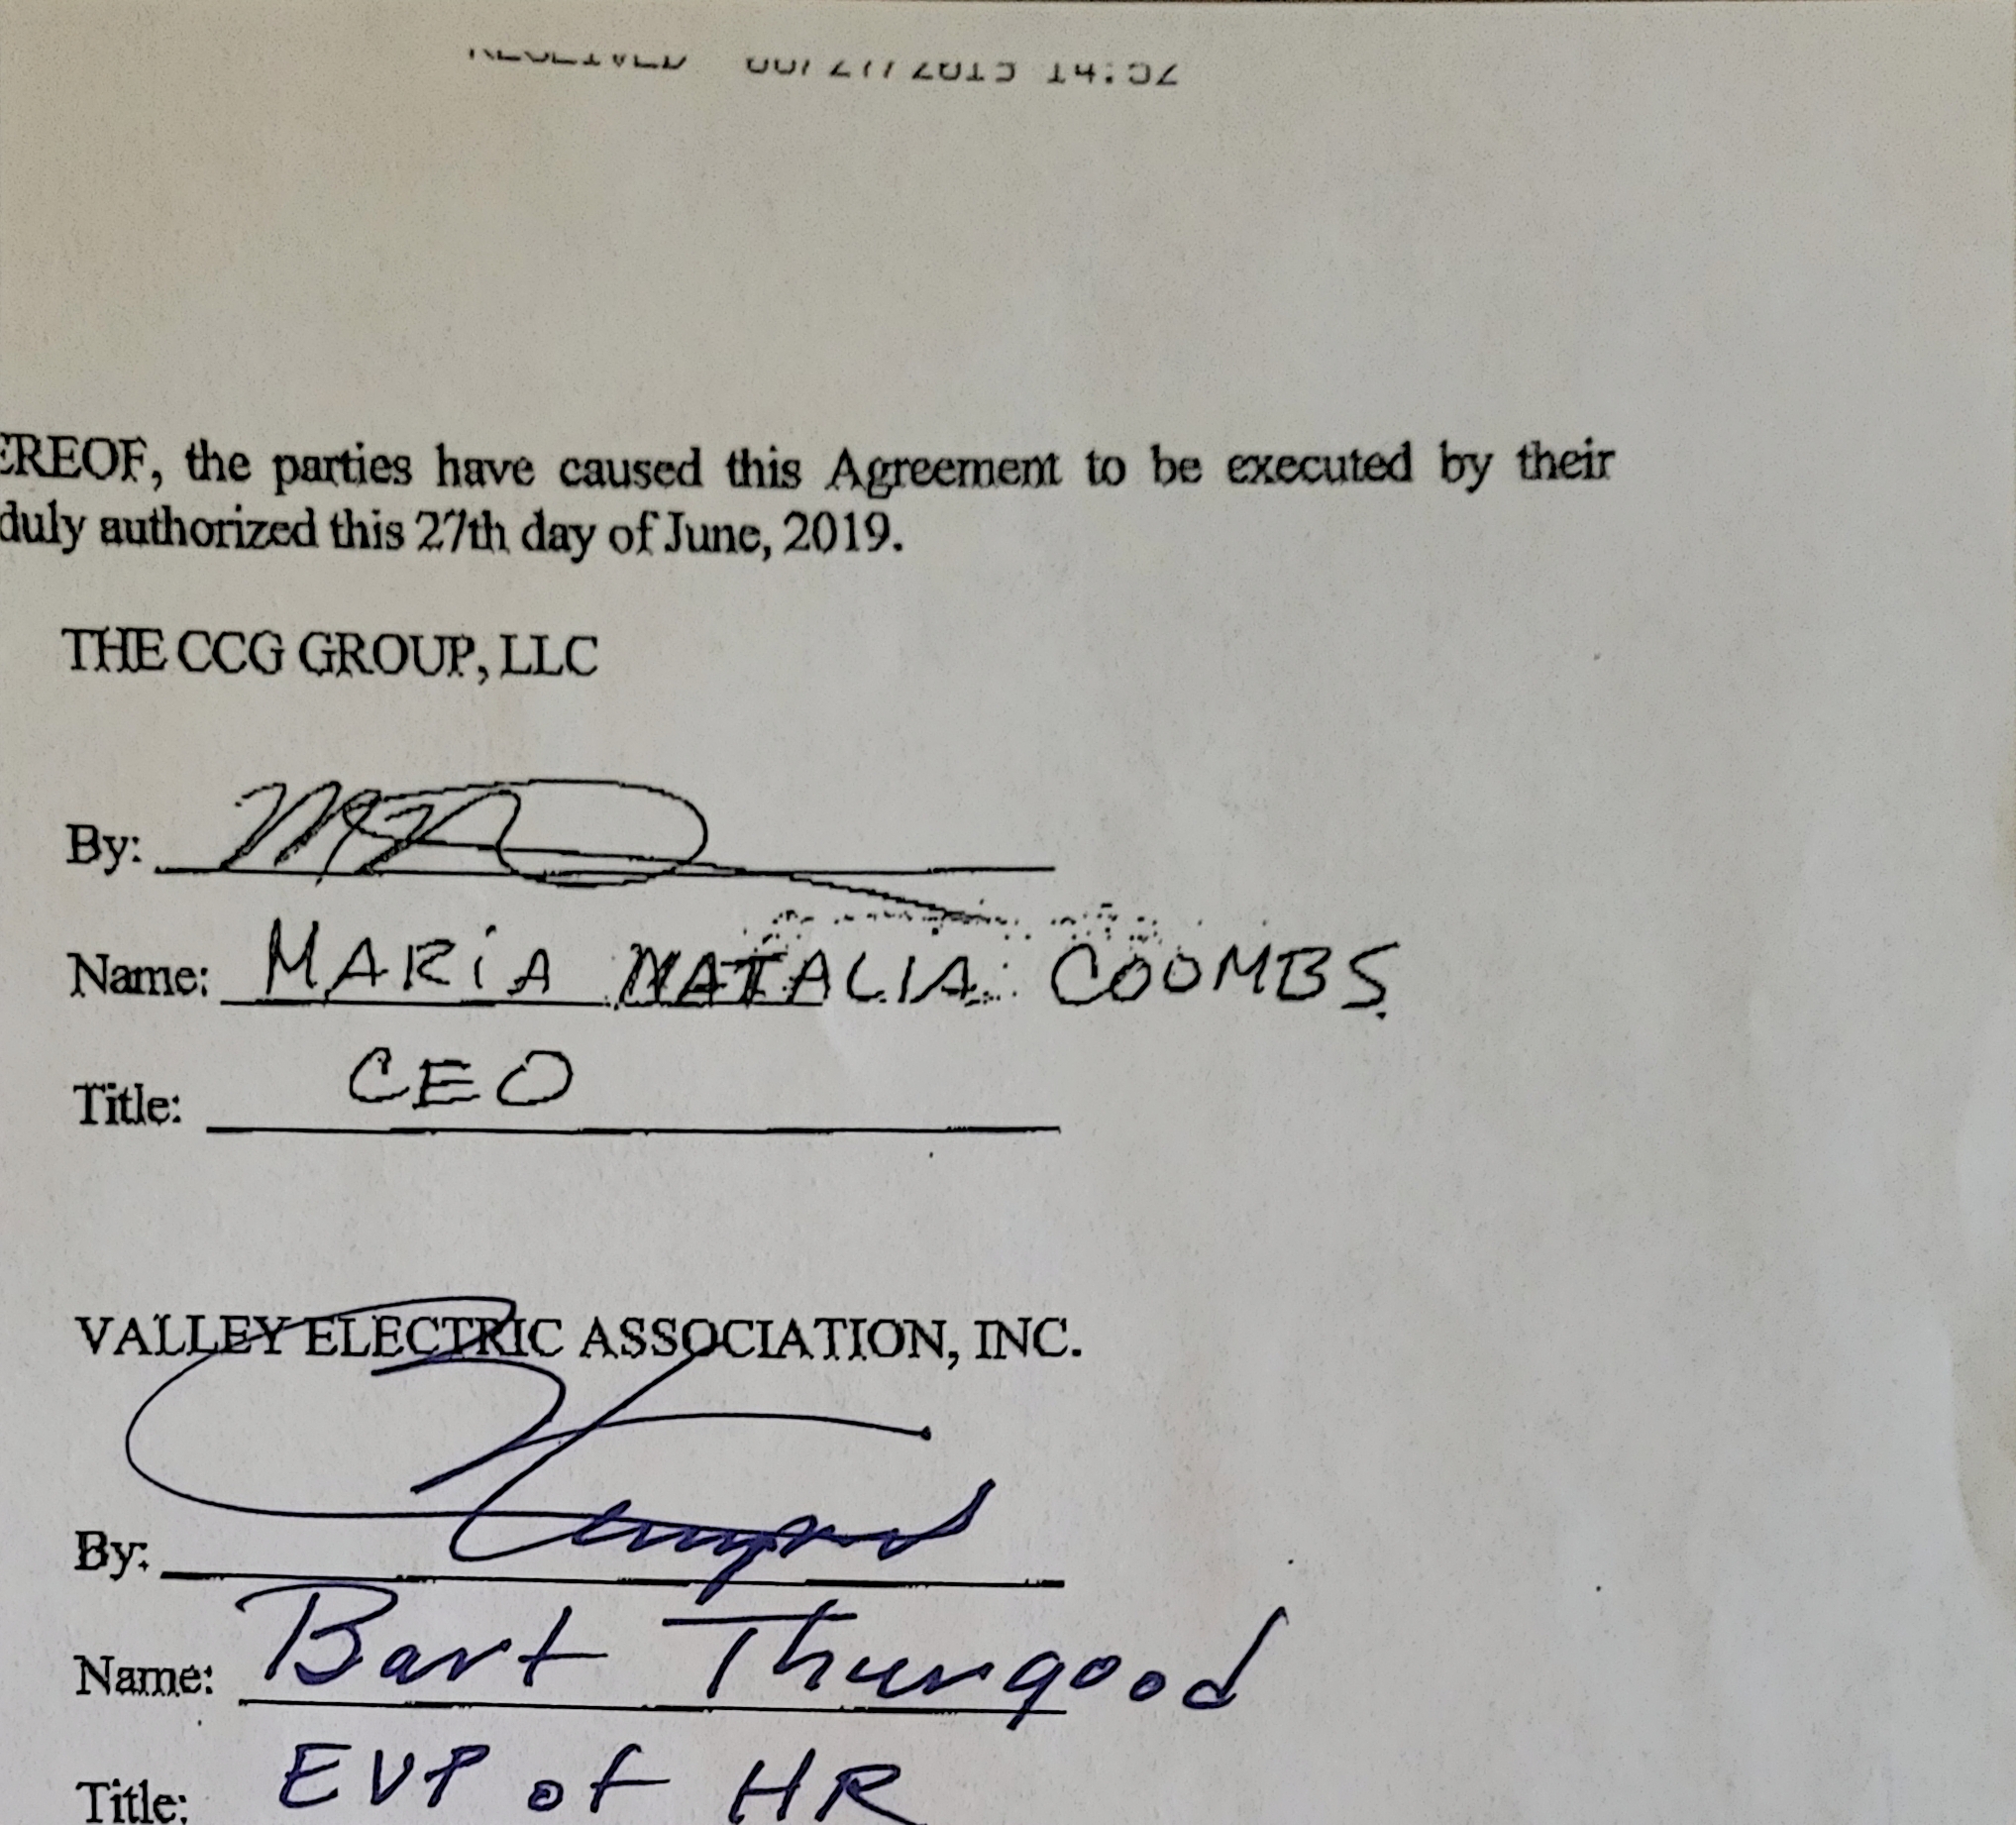 RECEIVED 06/27/2019 14:52
EREOF, the parties have caused this Agreement to be executed by their
duly authorized this 27th day of June, 2019.
THE CCG GROUP, LLC
By:
Name: MARiA NATALIA COOMBS
Title: CEO
VALLEY ELECTRIC ASSOCIATION, INC.
By:
Name: Bart Thurgood
Title: EVP of HR